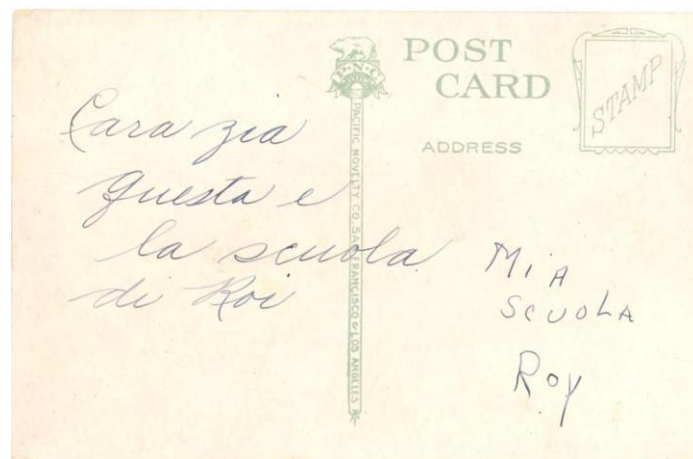 P·N·C
POST
CARD
STAMP
ADDRESS
PACIFIC NOVELTY CO. SAN FRANCISCO & LOS ANGELES
Cara zia
questa e
la scuola
di Roi
MiA
SCUOLA
Roy